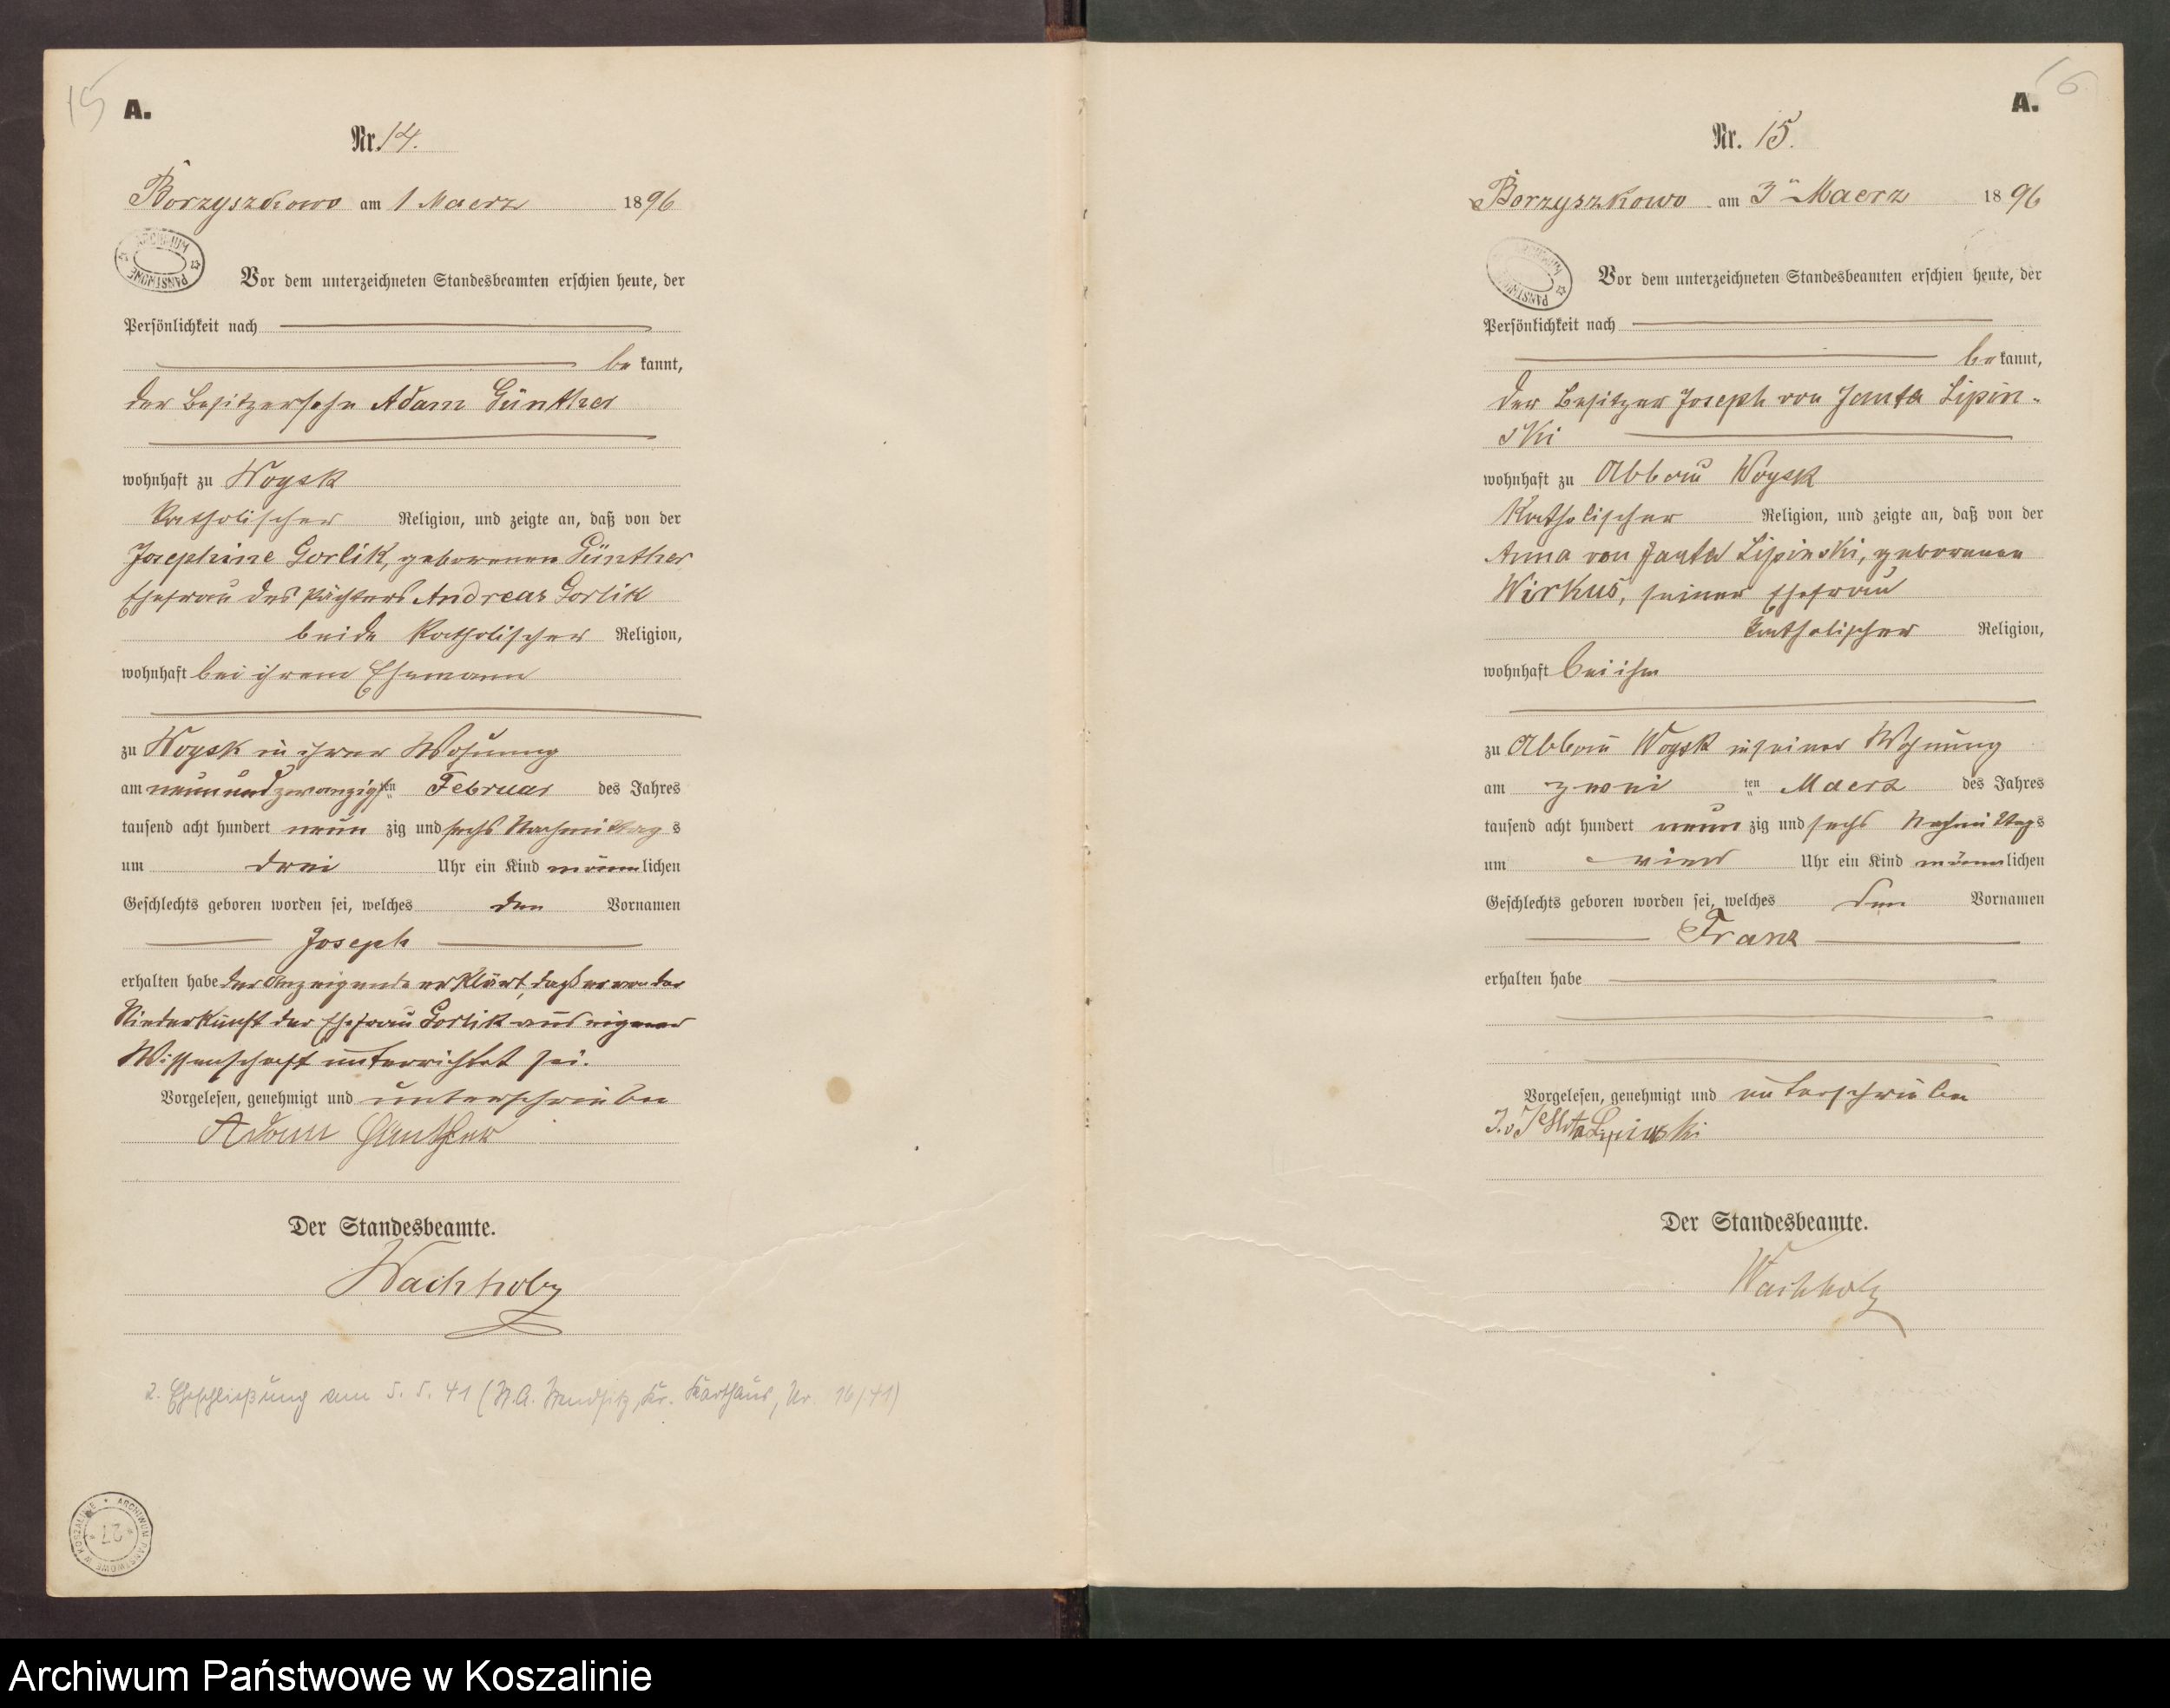 15
A.
Nr. 14.
Borzyszkowo am 1 Maerz 1896
ARCHIWUM PAŃSTWOWE
Vor dem unterzeichneten Standesbeamten erschien heute, der
Persönlichkeit nach
be kannt,
der Besitzersohn Adam Günther
wohnhaft zu Woysk
katholischer Religion, und zeigte an, daß von der
Josephine Gorlik, geborenen Günther
Ehefrau des Pächters Andreas Gorlik
beide katholischer Religion,
wohnhaft bei ihrem Ehemann
zu Woysk in ihrer Wohnung
am neunundzwanzigsten Februar des Jahres
tausend acht hundert neun zig und sechs Nachmittag s
um drei Uhr ein Kind männlichen
Geschlechts geboren worden sei, welches den Vornamen
Joseph
erhalten habe der Anzeigende erklärt, daß er von der
Niederkunft der Ehefrau Gorlik aus eigener
Wissenschaft unterrichtet sei.
Vorgelesen, genehmigt und unterschrieben
Adam Günther
Der Standesbeamte.
Wachholz
2. Eheschließung am 5. 5. 41 (Kr. Karthaus, Nr. 16/41)
ARCHIWUM PAŃSTWOWE W KOSZALINIE
27
16
A.
Nr. 15.
Borzyszkowo am 3ten Maerz 1896
ARCHIWUM PAŃSTWOWE
Vor dem unterzeichneten Standesbeamten erschien heute, der
Persönlichkeit nach
be kannt,
der Besitzer Joseph von Janta Lipin-
ski
wohnhaft zu Abbau Woysk
katholischer Religion, und zeigte an, daß von der
Anna von Janta Lipinski, geborenen
Wirkus, seiner Ehefrau
katholischer Religion,
wohnhaft bei ihm
zu Abbau Woysk in seiner Wohnung
am zwei ten Maerz des Jahres
tausend acht hundert neun zig und sechs Nachmittag s
um vier Uhr ein Kind männlichen
Geschlechts geboren worden sei, welches den Vornamen
Franz
erhalten habe
Vorgelesen, genehmigt und unterschrieben
J. v Janta Lipinski
Der Standesbeamte.
Wachholz
Archiwum Państwowe w Koszalinie